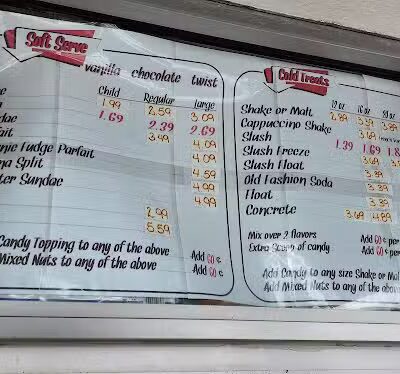 Soft Serve
vanilla chocolate twist
Child Regular Large
1.99 2.59 3.09
1.69 2.39 2.69
3.49 4.09
nie Fudge Parfait 4.09
na Split 4.59
ter Sundae 4.99
4.99
2.99
5.59
Candy Topping to any of the above Add 60¢
Mixed Nuts to any of the above Add 60¢
Cold Treats
12 oz 16 oz
Shake or Malt 2.89 3.39 3.89
Cappuccino Shake 3.69
Slush 1.39 1.69 1.8
Slush Freeze 3.39
Slush Float 3.69
Old Fashion Soda 3.39
Float 3.39
Concrete 3.69 4.89
Mix over 2 flavors Add 60¢ per
Extra Scoop of candy Add 60¢ per
Add Candy to any size Shake or Mal
Add Mixed Nuts to any of the abov